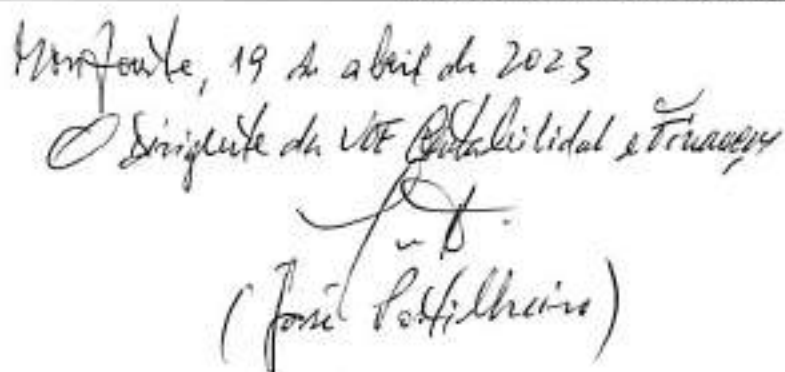 Monforte, 19 de abril de 2023
O Dirigente da UOF Contabilidade e Finanças
(José Pastilheiro)